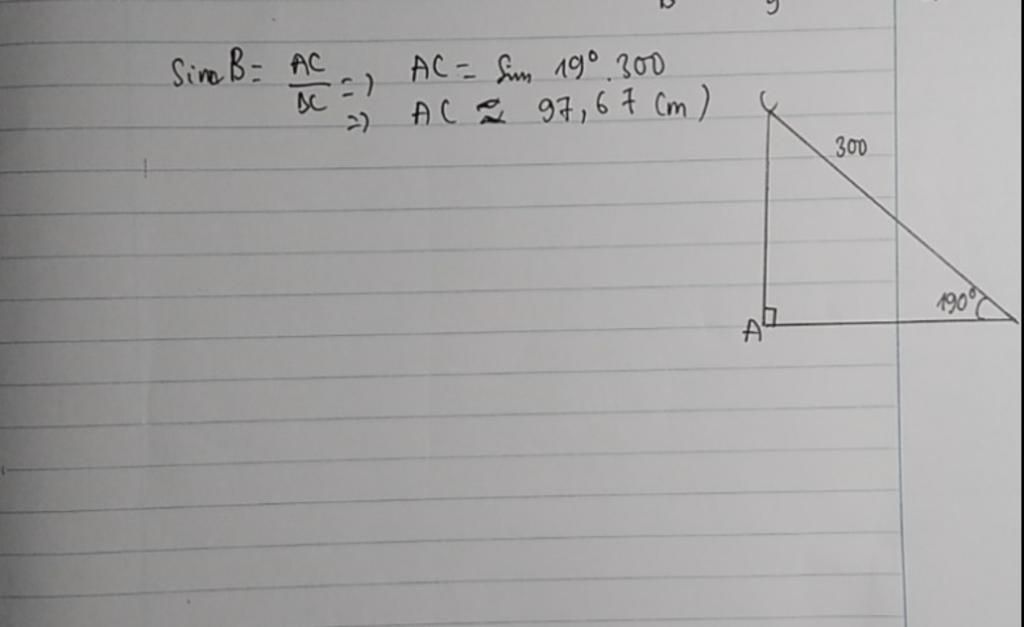 B 9
Sin B = AC/BC => AC = Sin 19°.300
=> AC ≈ 97,67 (m)
C
300
190°
A